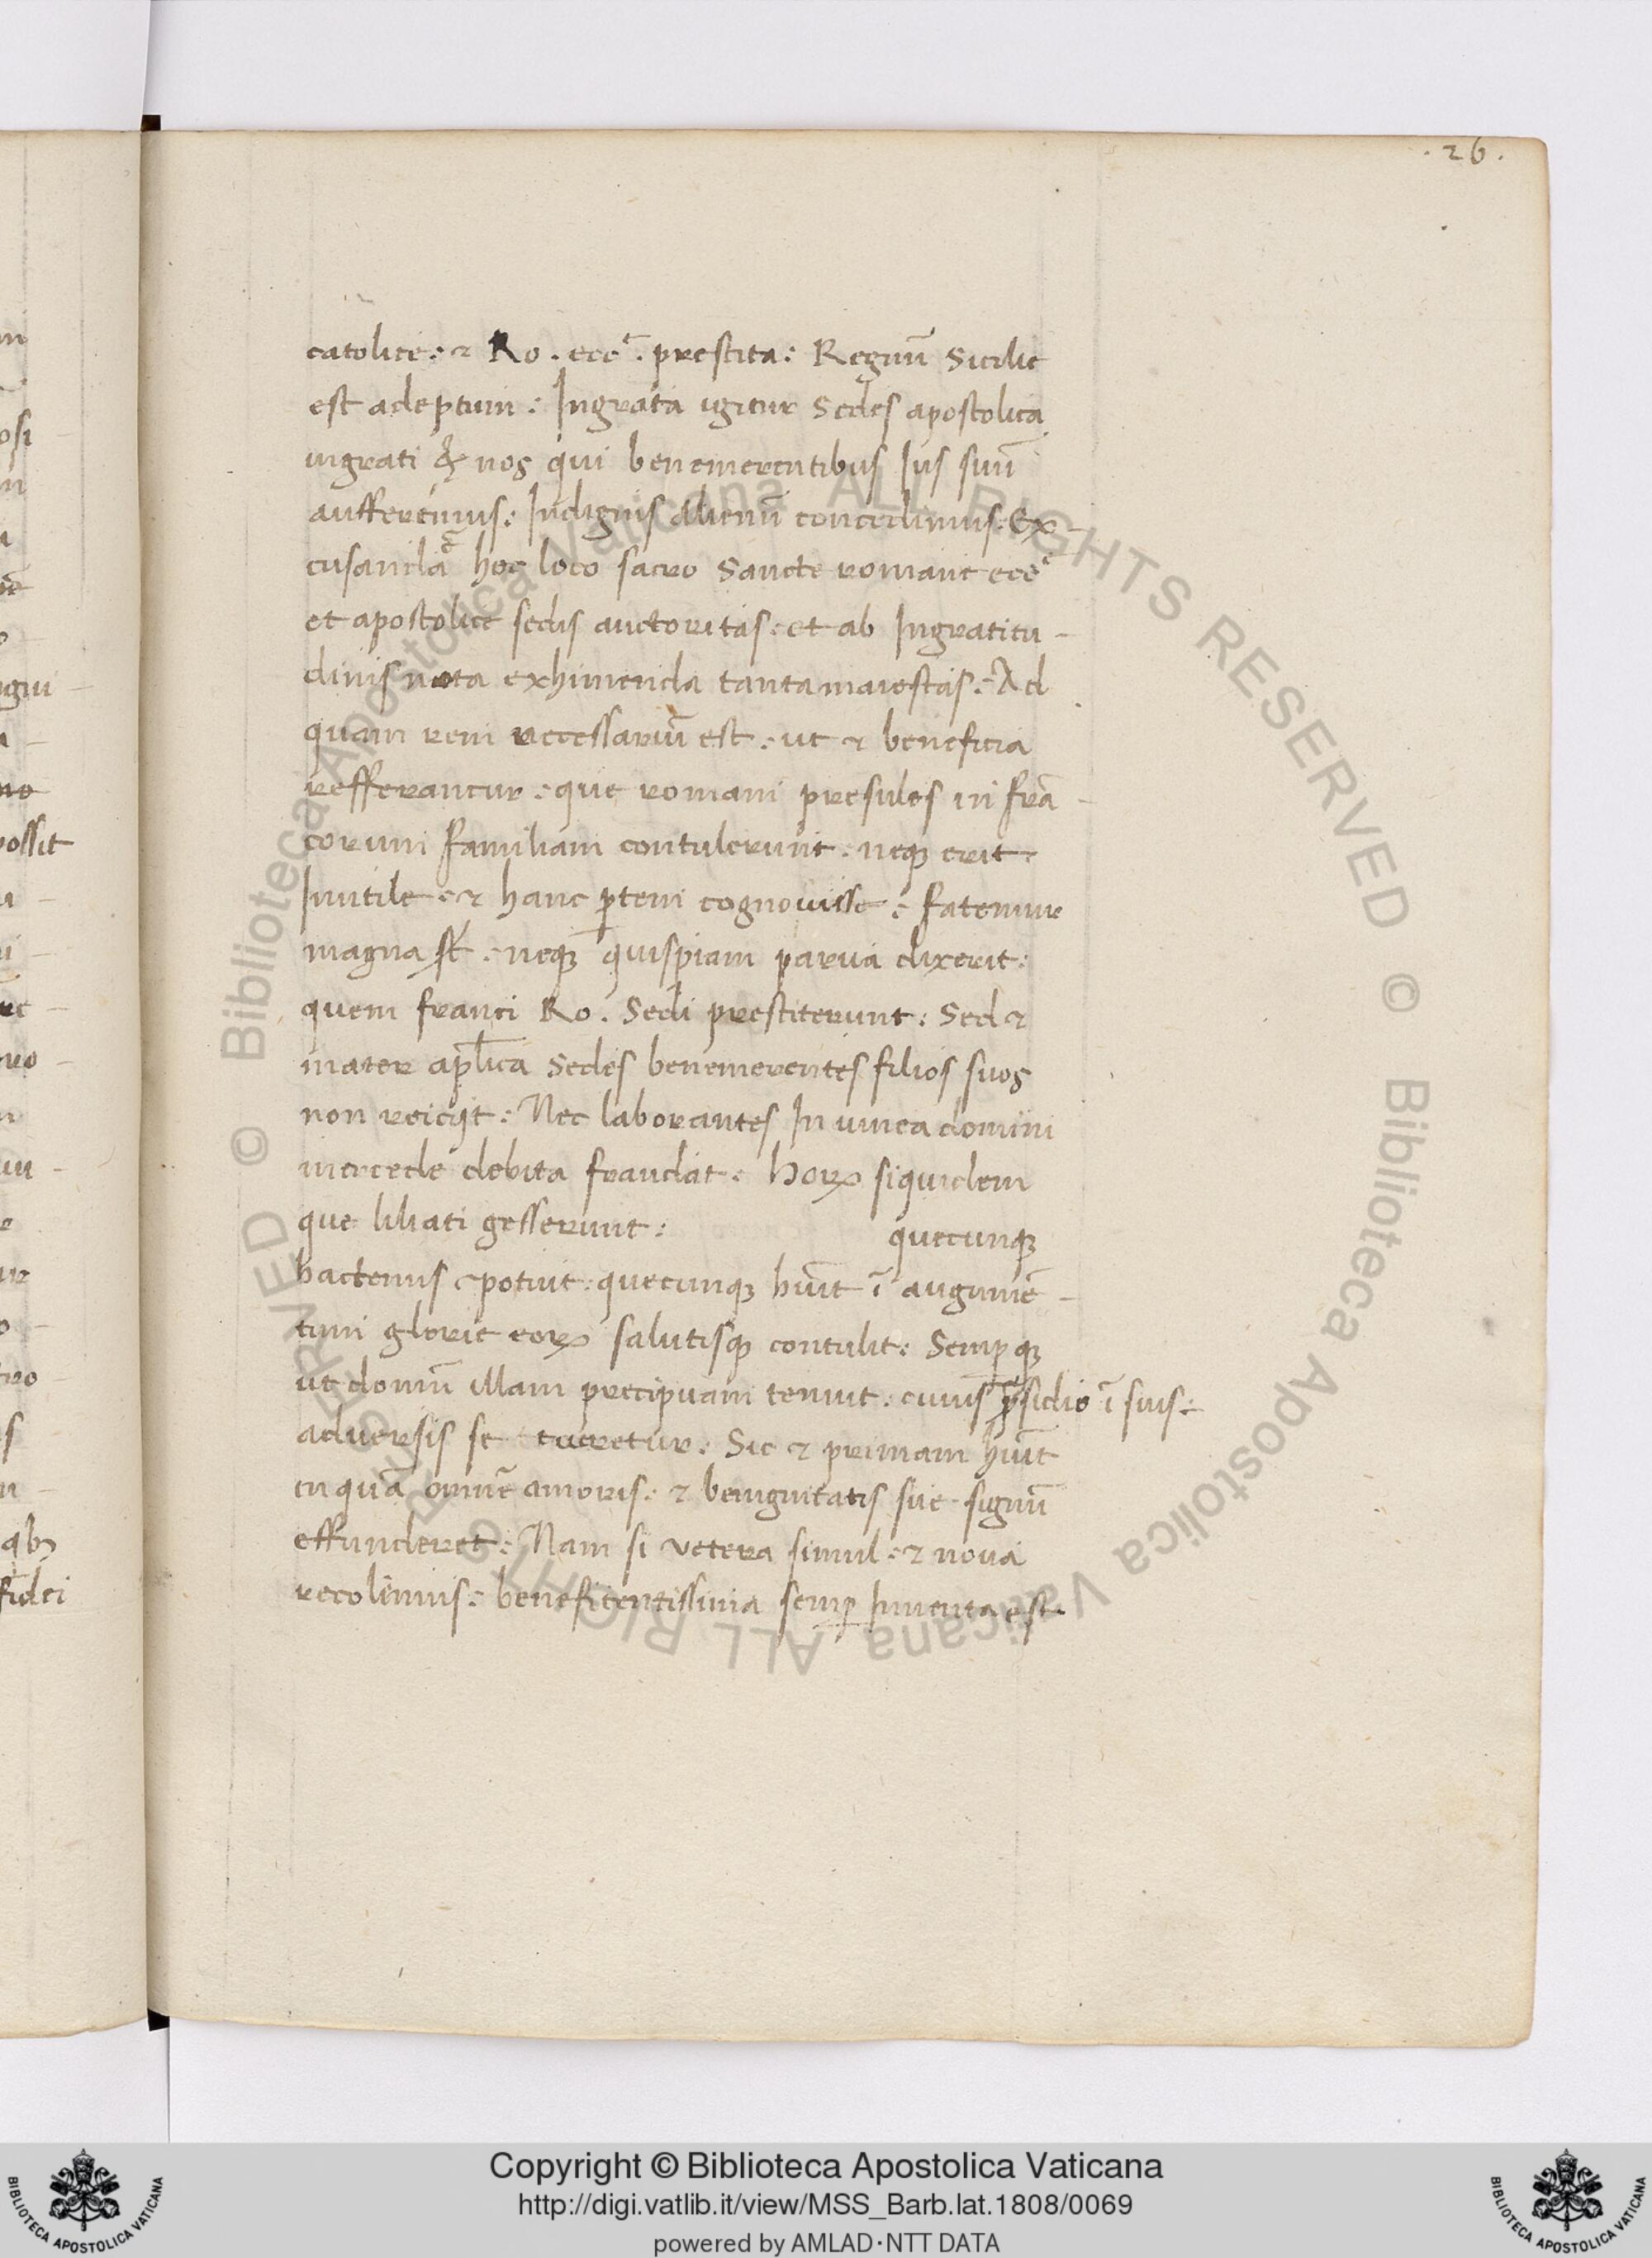 .26.
catolice: ⁊ Ro. ecc̄e. prestita: Regnū Sicilie
est adeptum: Ingrata igitur Sedes apostolica
ingrati & nos qui benemerentibus Ius suū
aufferemus: Indignis alienū concedimus: Ex-
cusanda ē hoc loco sacro Sancte romane ecc̄e
et apostolice sedis auctoritas: et ab Ingratitu-
dinis nota exhimenda tanta maiestas: Ad
quam rem necessariū est: ut ⁊ beneficia
refferantur: que romani presules in frā-
corum familiam contulerunt: neqꝫ erit:
Inutile: ⁊ hanc ꝑtem cognovisse: fatemur
magna st̄: neqꝫ quispiam parva dixerit:
quem franci Ro. Sedi prestiterunt: Sed ⁊
mater apl̄ica Sedes benemerentes filios suos
non reicijt: Nec laborantes In vinea domini
mercede debita fraudat: horꝝ siquidem
que liliati gesserunt: quecunqꝫ
hactenus potuit: quecunqꝫ huīt ī augumē-
tum glorie eorꝝ salutisqꝫ contulit: Sempqꝫ
ut domū illam precipuam tenuit: cuius p̄sidio ī suis:
adversis se tueretur: Sic ⁊ primam huīt
in quā omnē amoris: ⁊ benignitatis sue signū
effunderet: Nam si vetera simul: ⁊ nova
recolimus: beneficentissima semꝑ Inventa est
ossit
qbꝫ
fidei
© Biblioteca Apostolica Vaticana ALL RIGHTS RESERVED © Biblioteca Apostolica Vaticana ALL RIGHTS RESERVED
Copyright © Biblioteca Apostolica Vaticana
http://digi.vatlib.it/view/MSS_Barb.lat.1808/0069
powered by AMLAD·NTT DATA
BIBLIOTECA APOSTOLICA VATICANA
BIBLIOTECA APOSTOLICA VATICANA